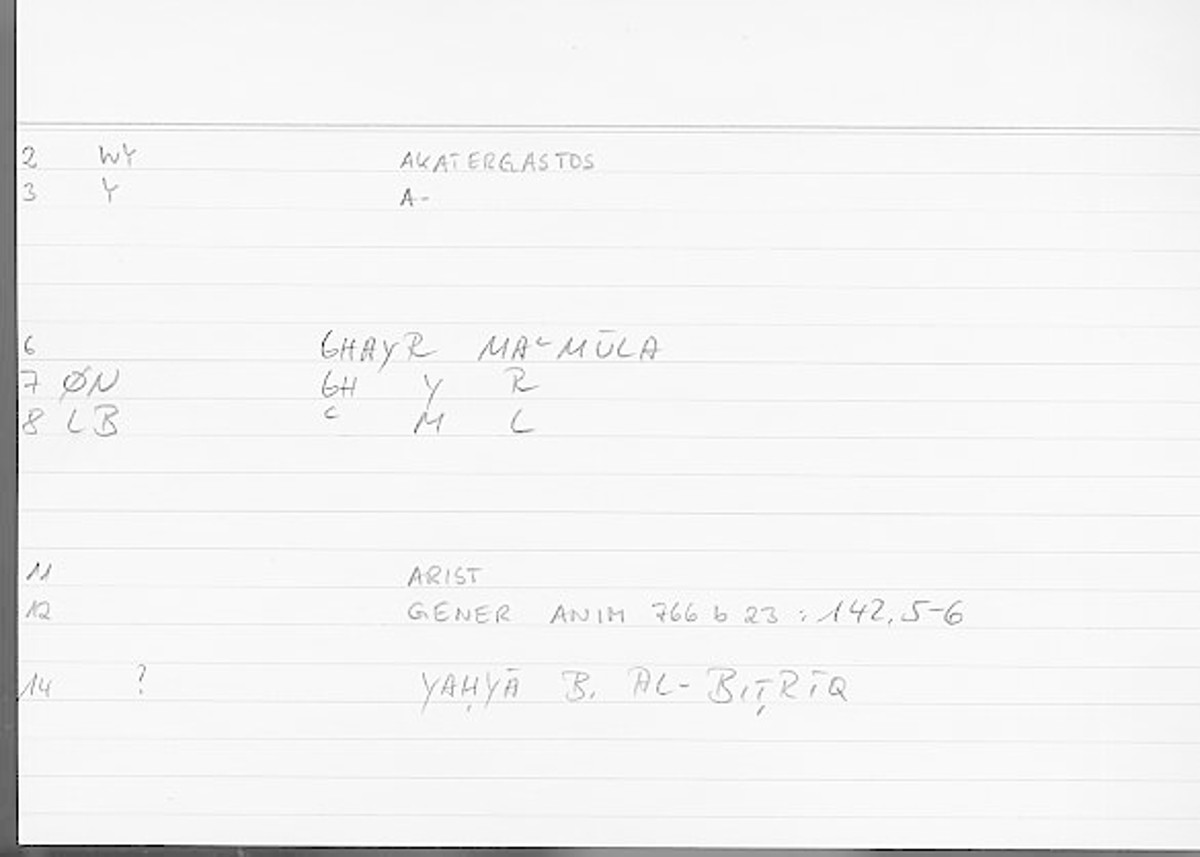 2 WY AKATERGASTOS
3 Y A-
6 GHAYR MAʿMŪLA
7 ØN GH Y R
8 LB ʿ M L
11 ARIST
12 GENER ANIM 766 b 23 : 142,5-6
14 ? YAḤYĀ B. AL-BIṬRĪQ